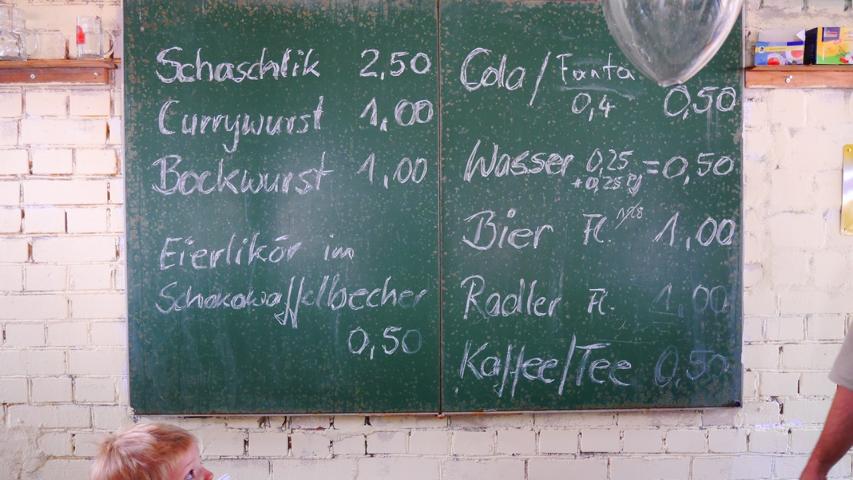 Schaschlik 2,50
Currywurst 1,00
Bockwurst 1,00
Eierlikör im
Schokowaffelbecher
0,50
Cola/Fanta
0,4 0,50
Wasser 0,25 = 0,50
+0,25
Bier Fl. 1,00
Radler Fl. 1,00
Kaffee/Tee 0,50